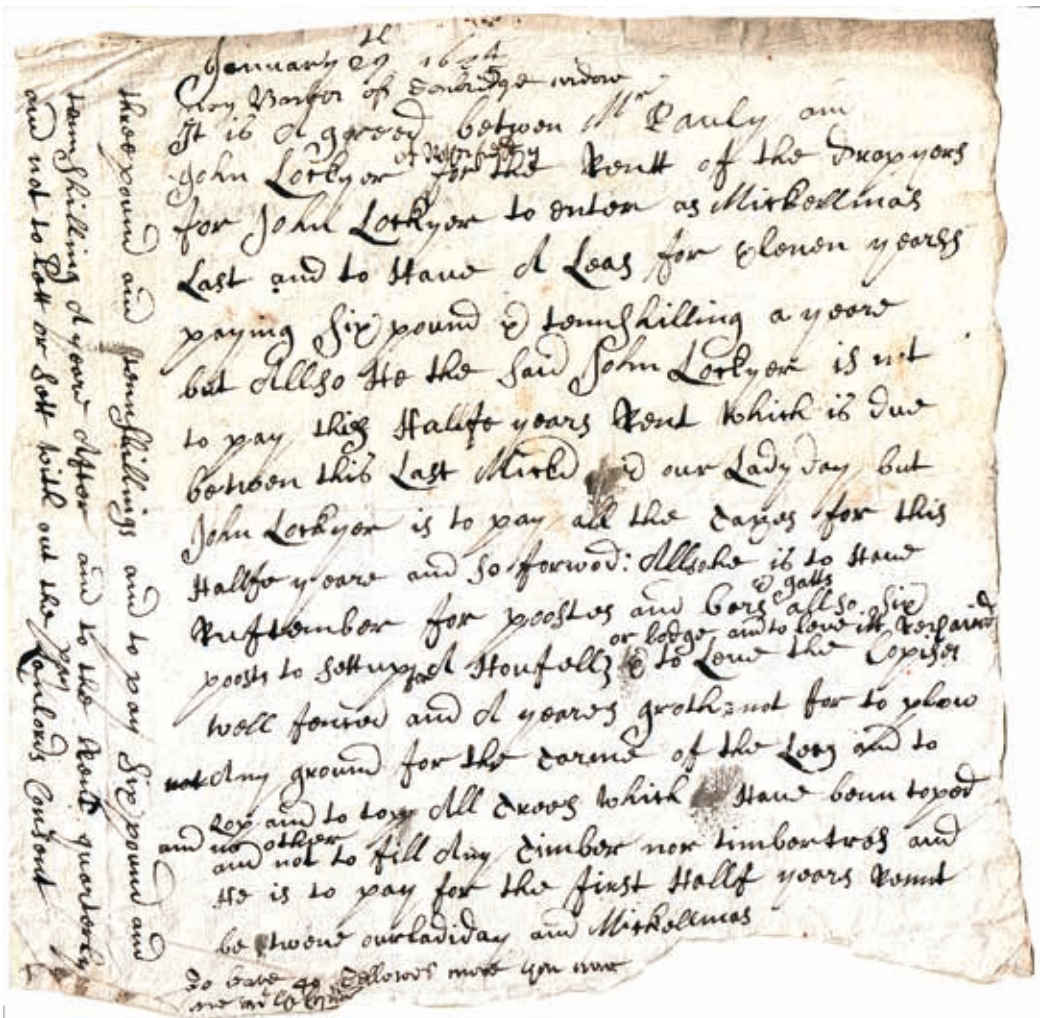 January 29th 16
Barfor of Tonbridge widow
It is A greed betwen Mr Pauly and
John Lockyer for the Rentt of the Drapyers
for John Lockyer to enter as Mickellmas
Last and to Have A Leas for Eleven yeares
paying Six pound & tennshilling a yeare
but Allso He the said John Lockyer is not
to pay this Halife years Rent which is due
between this Last Mickel & our Lady day but
John Lockyer is to pay all the taxes for this
Hallfe yeare and so forwod: Allsohe is to Have
Ruftember for poostes and bars & gatts allso six
poosts to sett up for A Houfell or lodge and to leve itt Repaired & to Leve the Copises
well fenced and A yeares groth: not for to plow
Any ground for the tarme of the Leas and to
Lop and to top All trees which Have benn toped
and no other
and not to fill Any timber nor timbertres and
He is to pay for the first Hallf years Rennt
be twene ourladiday and Mickellmas
to have 40 Tellowes more
three pound and tennshillings and to pay Six pound and
tennshilling A yeare After and to the Rent quarterly
and not to Lett or Sett with out the Lanlords Consent